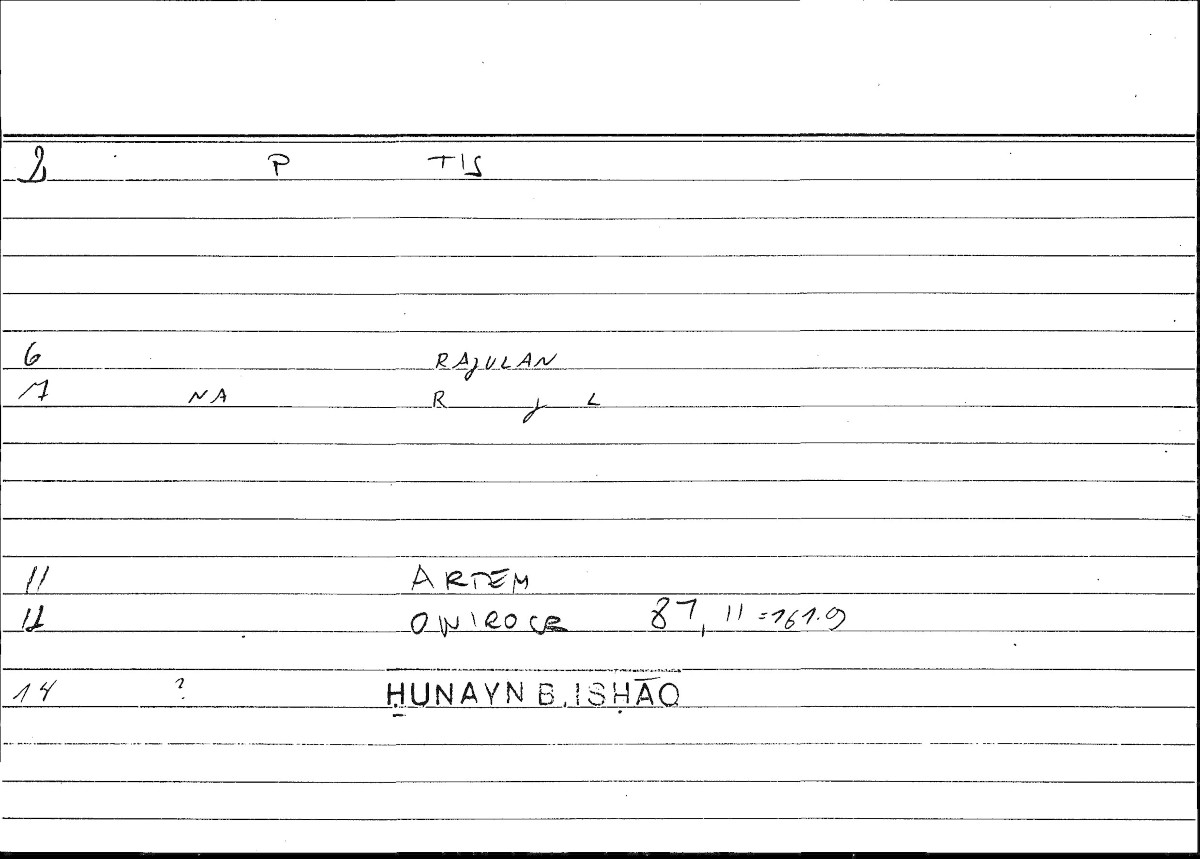 2 P TIS
6 RAJULAN
7 NA R J L
11 ARTEM
12 ONIROCR 87, 11 = 161.9
14 ? ḤUNAYN B. ISḤĀQ